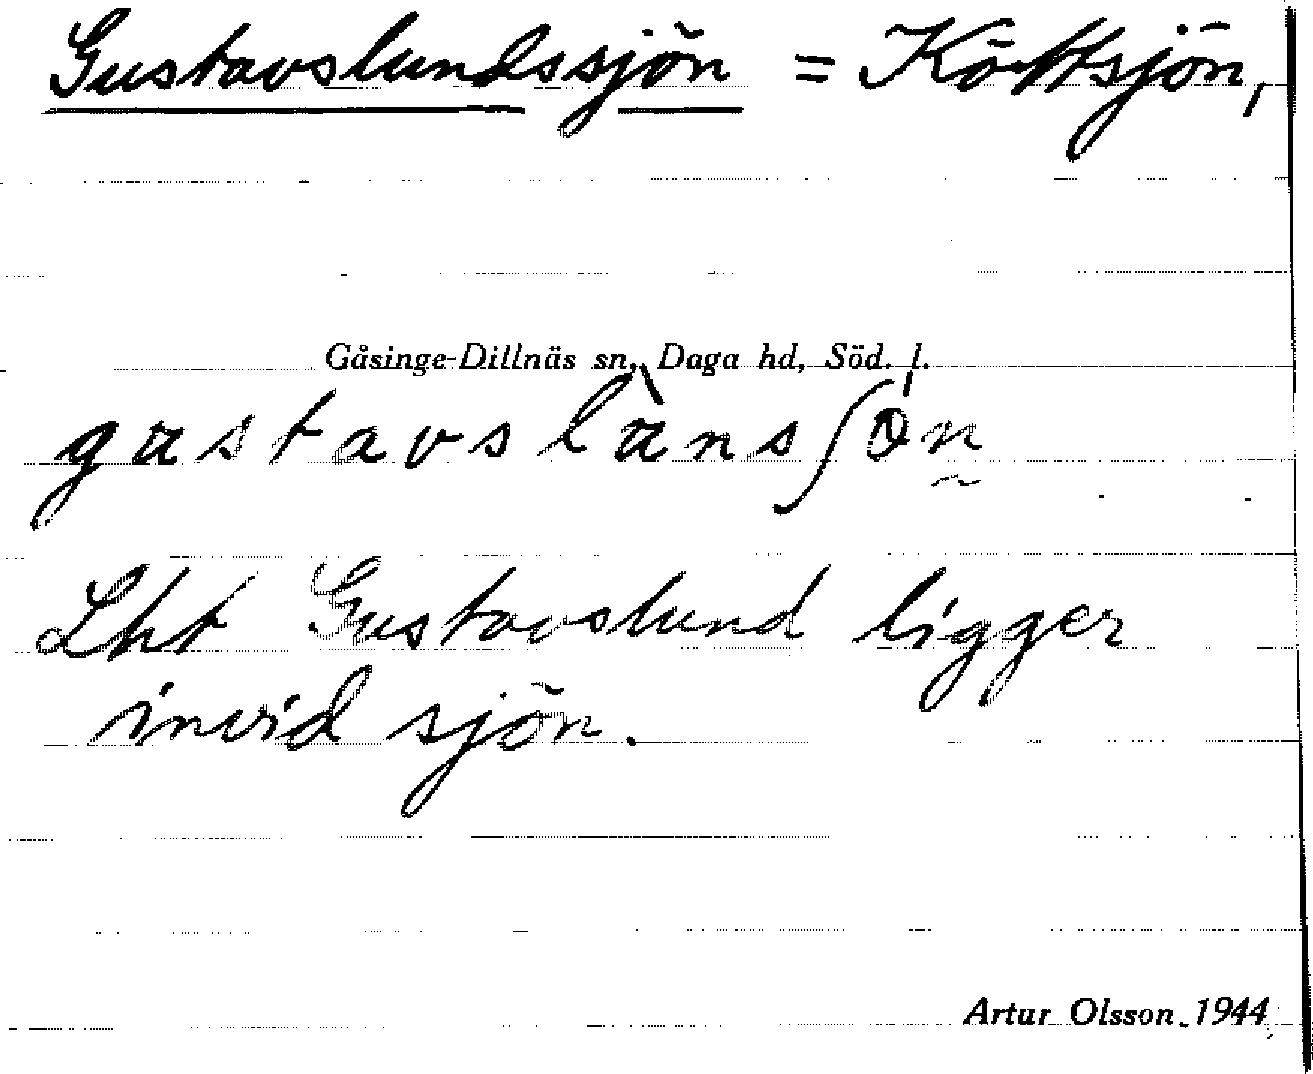 Gustavslundssjön = Köttsjön,
Gåsinge-Dillnäs sn, Daga hd, Söd. l.
Lht Gustavslund ligger
invid sjön.
Artur Olsson 1944